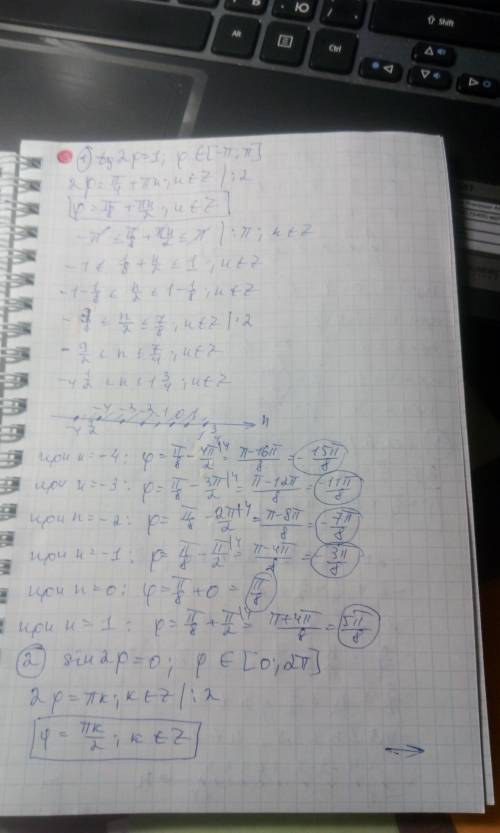 Alt
Ctrl
Shift
① tg2φ=1; φ∈[-π;π]
2φ=π/4+πn; n∈Z |:2
φ=π/8+πn/2; n∈Z
-π≤π/8+πn/2≤π |:π; n∈Z
-1≤1/8+n/2≤1; n∈Z
-1-1/8≤n/2≤1-1/8; n∈Z
-9/8≤n/2≤7/8; n∈Z |:2
-9/2≤n≤7/4; n∈Z
-4 1/2≤n≤1 3/4; n∈Z
-4 -3 -2 -1 0 1 n
при n=-4: φ=π/8-4π/2|·4=π-16π/8=-15π/8
при n=-3: φ=π/8-3π/2|·4=π-12π/8=-11π/8
при n=-2: φ=π/8-2π/2|·4=π-8π/8=-7π/8
при n=-1: φ=π/8-π/2|·4=π-4π/2=-3π/8
при n=0: φ=π/8+0=π/8
при n=1: φ=π/8+π/2|·4=π+4π/8=5π/8
② sin2φ=0; φ∈[0;2π]
2φ=πk; k∈Z |:2
φ=πk/2; k∈Z